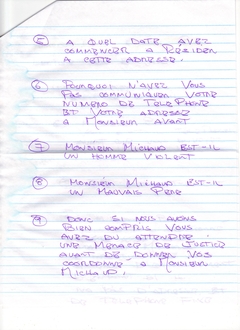 5 A QUEL DATE AVEZ
COMMENCER A RESIDER
A CETTE ADRESSE.
6 POURQUOI N'AVEZ VOUS
PAS COMMUNIQUER VOTRE
NUMERO DE TELEPHONE
ET VOTRE ADRESSE
A MONSIEUR AVANT
7 MONSIEUR MICHAUD EST-IL
UN HOMME VIOLENT
8 MONSIEUR MICHAUD EST-IL
UN MAUVAIS PERE
9 DONC SI NOUS AVONS
BIEN COMPRIS VOUS
AVEZ DU ATTENDRE
UNE MENACE DE JUSTICE
AVANT DE DONNER VOS
COORDONNE A MONSIEUR
MICHAUD.